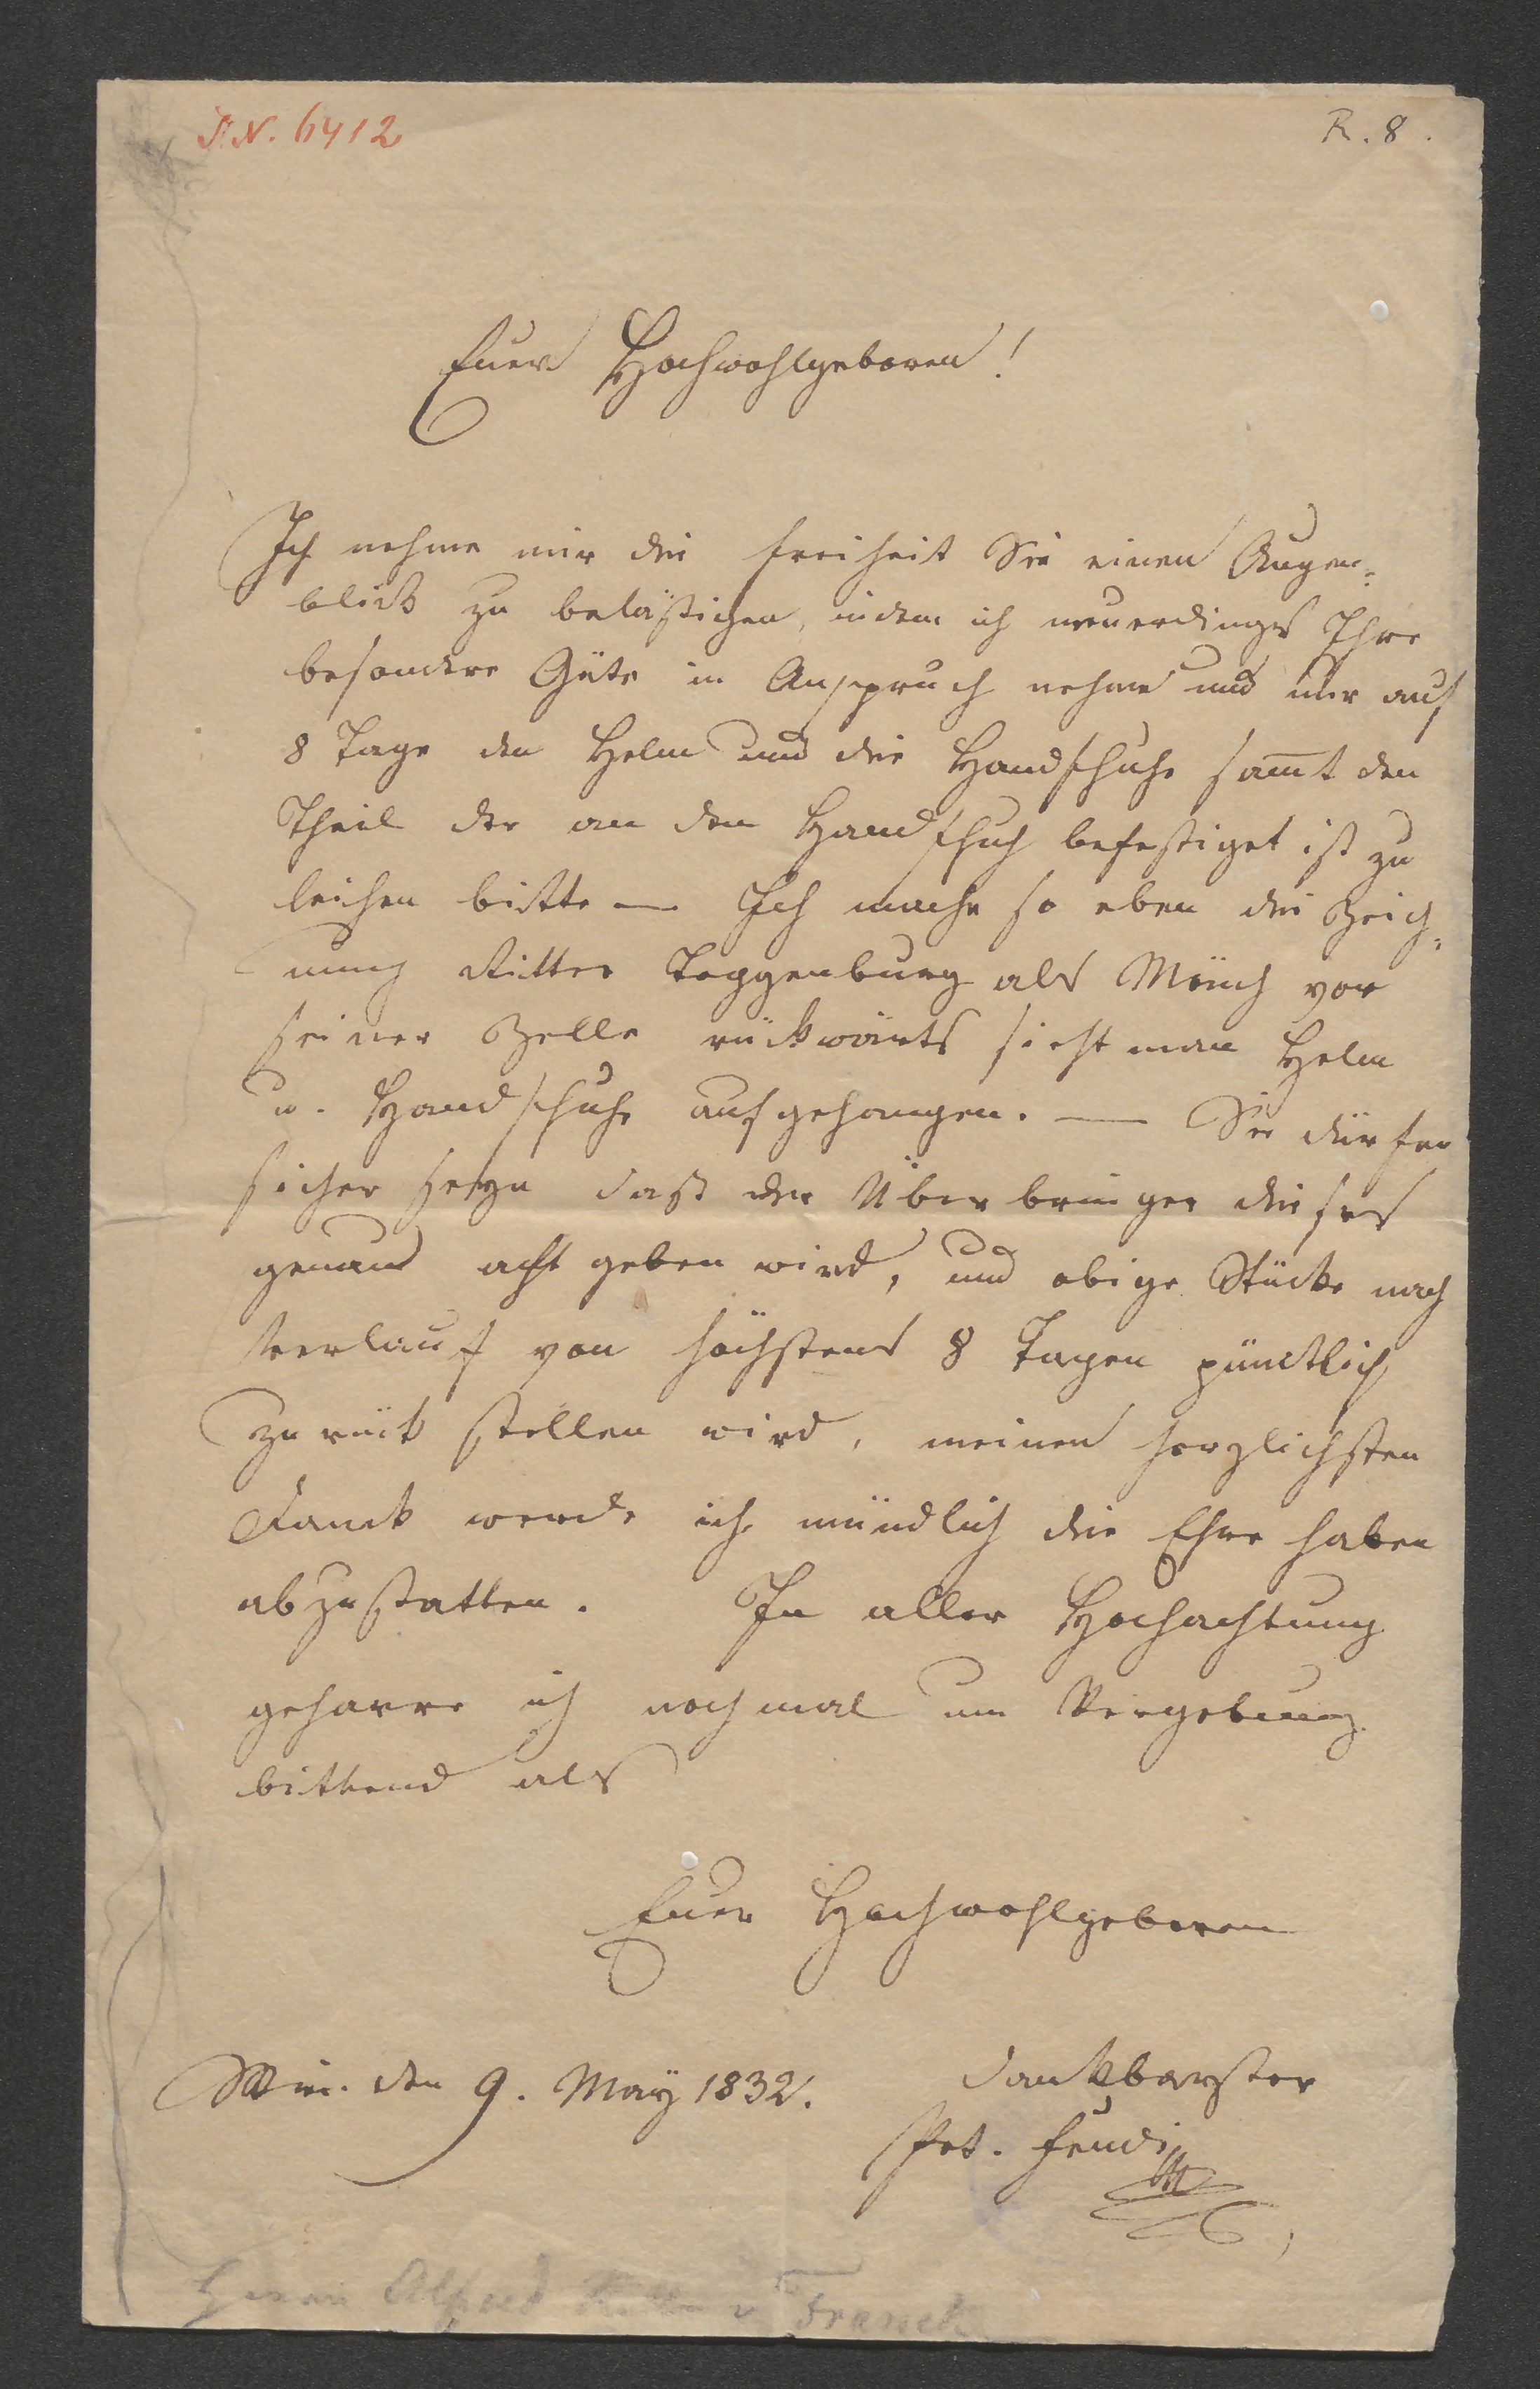 I.N. 6412
R. 8.
Euer Hochwohlgeboren!
Ich nehme mir die Freiheit Sie einen Augen=
blick zu belästigen, indem ich neuerdings Ihre
besondere Güte in Anspruch nehme und mir auf
8 Tage den Helm und die Handschuhe sam̄t den
Theil der an dem Handschuh befestiget ist zu
leihen bitte — Ich mache so eben die Zeich=
nung Ritter Toggenburg als Mönch vor
seiner Zelle rückwärts sieht man Helm
u. Handschuhe aufgehangen. — Sie dürfen
sicher seyn daß der Überbringer dieses
genau acht geben wird, und obige Stücke nach
Verlauf von höchstens 8 Tagen pünctlich
zurück stellen wird, meinen herzlichsten
Danck werde ich mündlich die Ehre haben
abzustatten. In aller Hochachtung
geharre ich nochmal um Vergebung
bittend als
Euer Hochwohlgeboren
Wien den 9. May 1832.
dankbarster
Pet. Fendi
Herrn Alfred Ritter v Franck